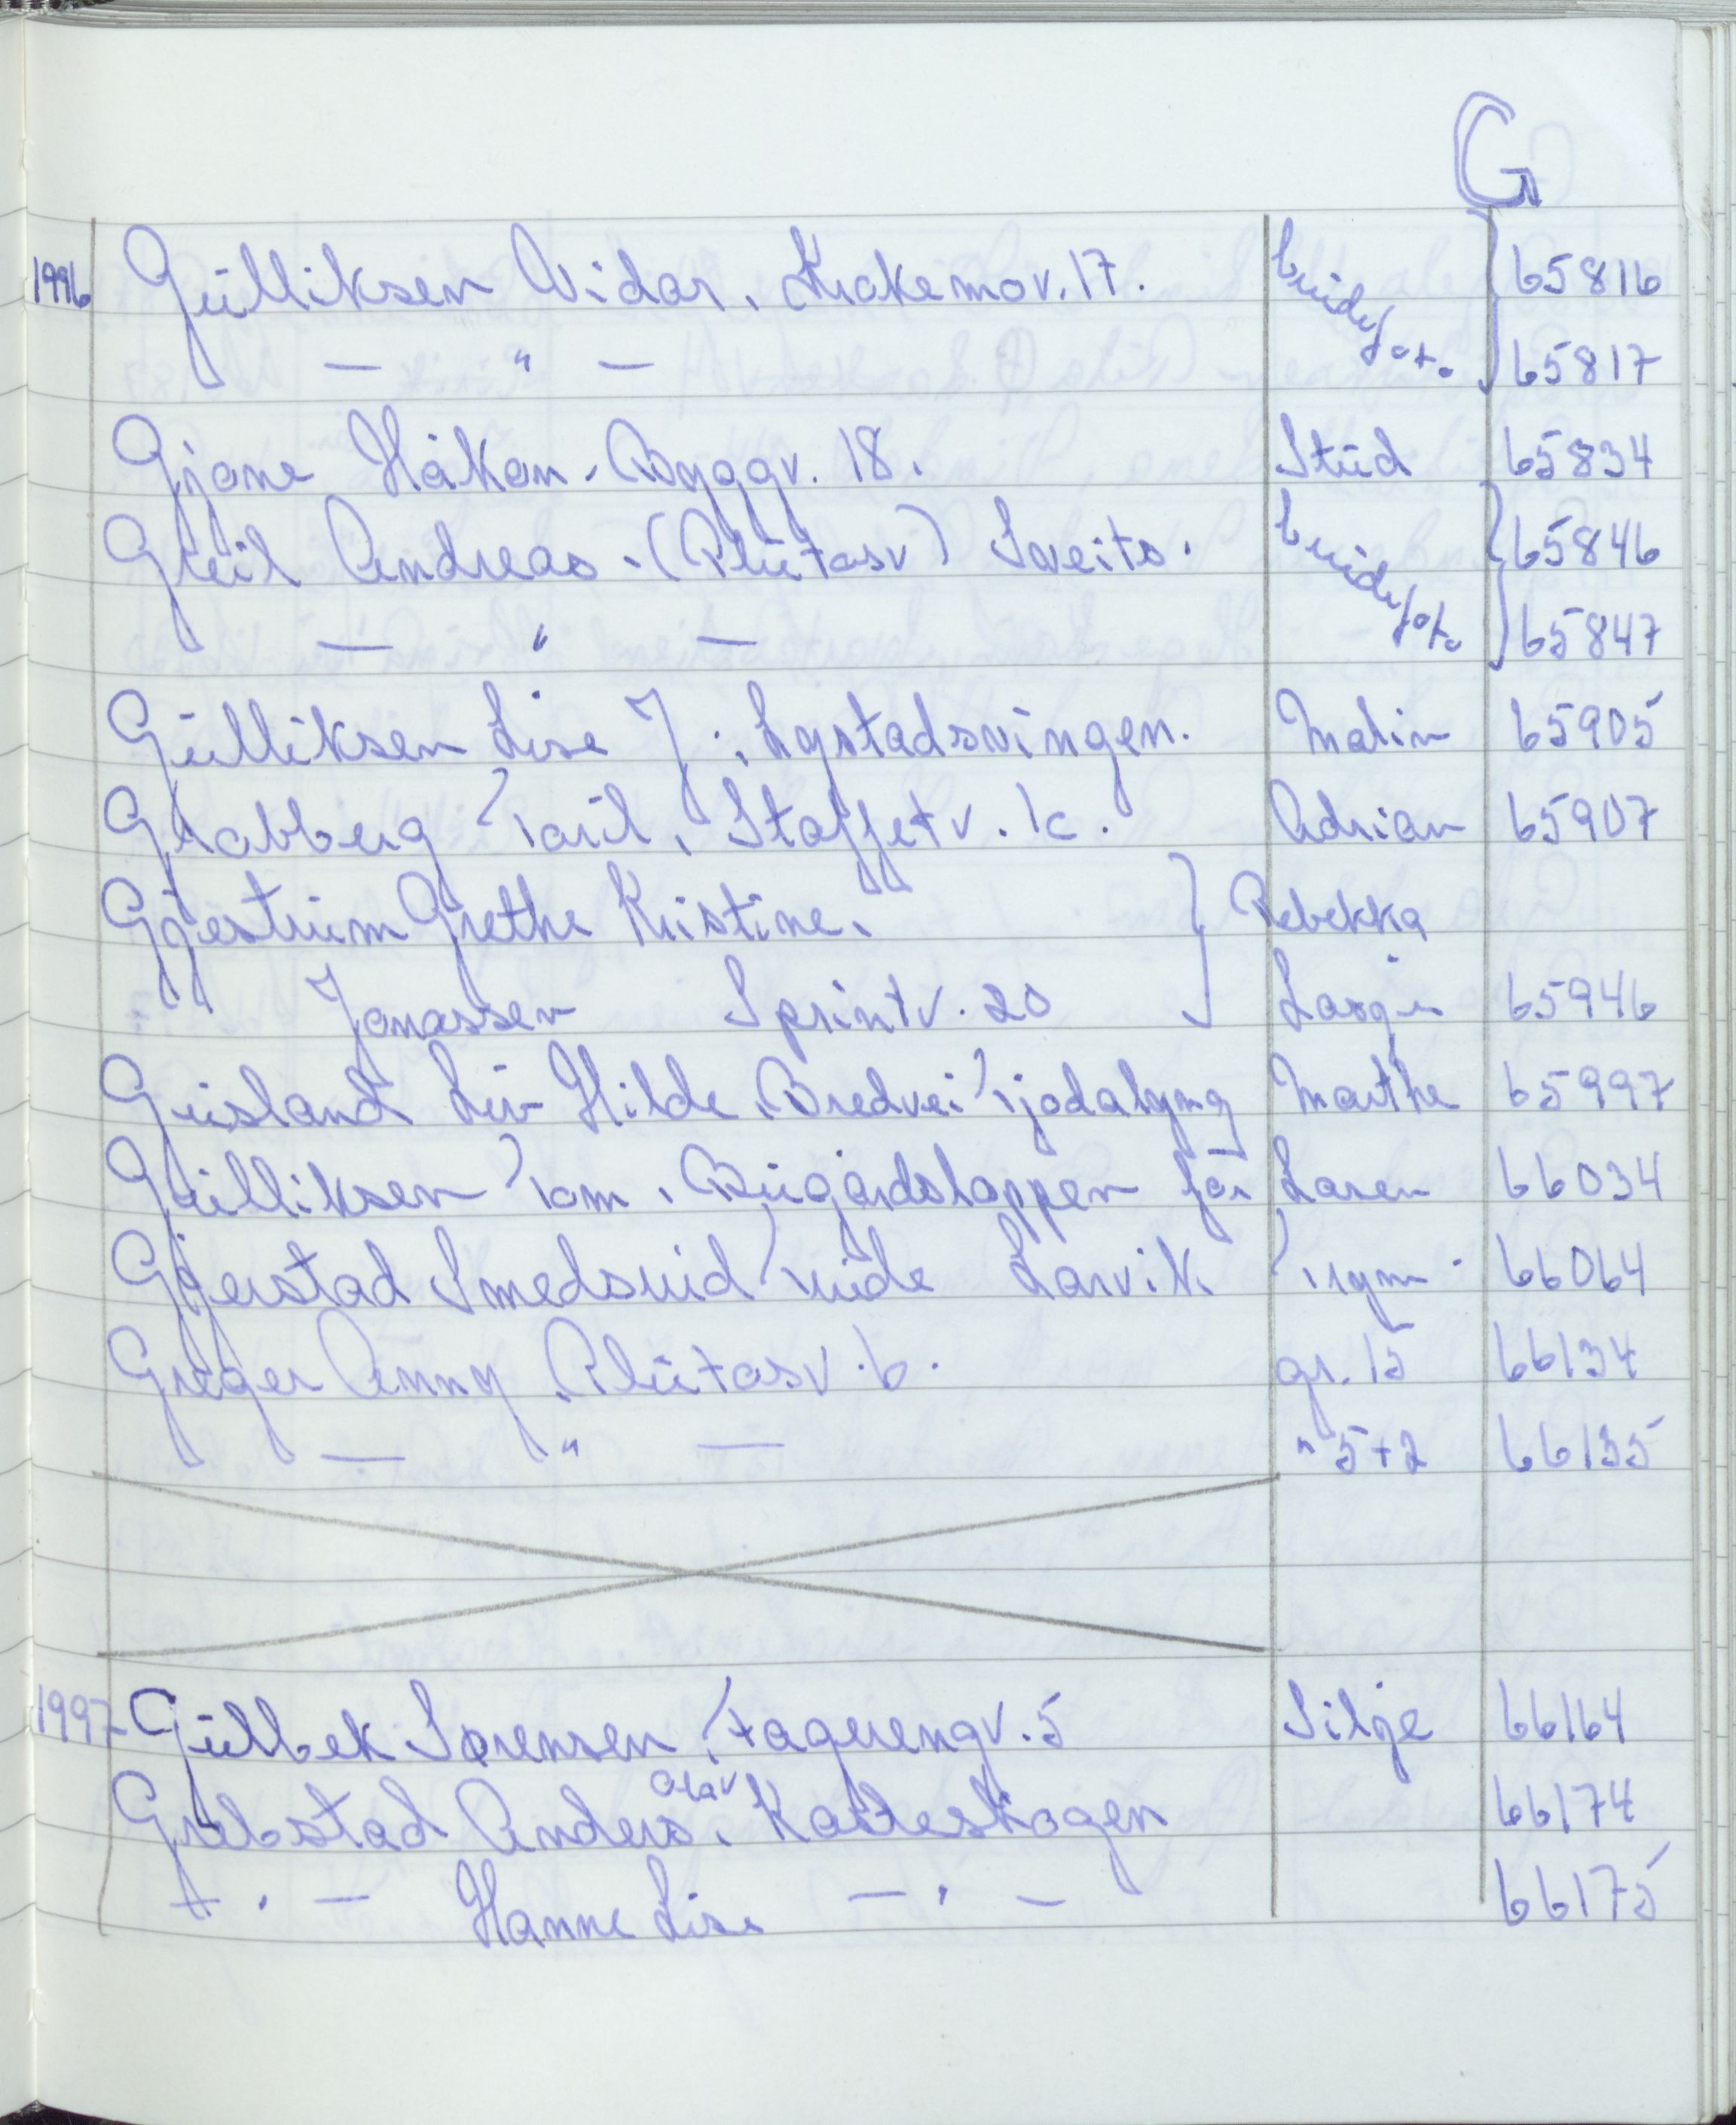 G
1996 Gulliksen Vidar. Krakemov. 17. brudefot. 65816
— " — 65817
Gjone Håkon. Byggv. 18. Stud 65834
Greil Andreas. (Plutosv) Sveits. brudefot. 65846
— " — 65847
Gulliksen Lise J., Lystadsvingen. Malin 65905
Grobberg Toril, Stoffetv. 1c. Adrian 65907
Gjestrum Grethe Kristine. } Rebekka
Jonassen Sprintv. 20 65946
Grisland Liv Hilde. Bredvei Tjodalyng Marthe 65997
Gulliksen Tom. Bugårdsloppen far Lasen 66034
Gjerstad Smedsrud Tride Larvik. Trym 66064
Greger Anny, Plutosv. 6. gr. 15 66134
— " — " 5+2 66135
1997 Gulbek Sørensen, Fagerengv. 5 Silje 66164
Olav
Grebstad Anders. Kasteskogen 66174
+ . — Hanne Lise — " — 66175